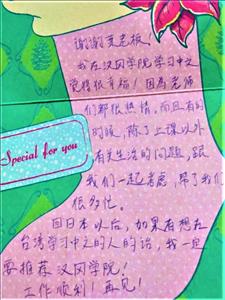 谢谢王老板!
我在汉风学院学习中文
觉得很幸福!因为老师
们都很热情。而且有的
的时候,除了上课以外
有关生活的问题,跟
我们一起考虑,帮了我们
很多忙。
Special for you
回日本以后,如果有想在
台湾学习中文的人的话,我一定
要推荐汉风学院!
工作顺利!再见!